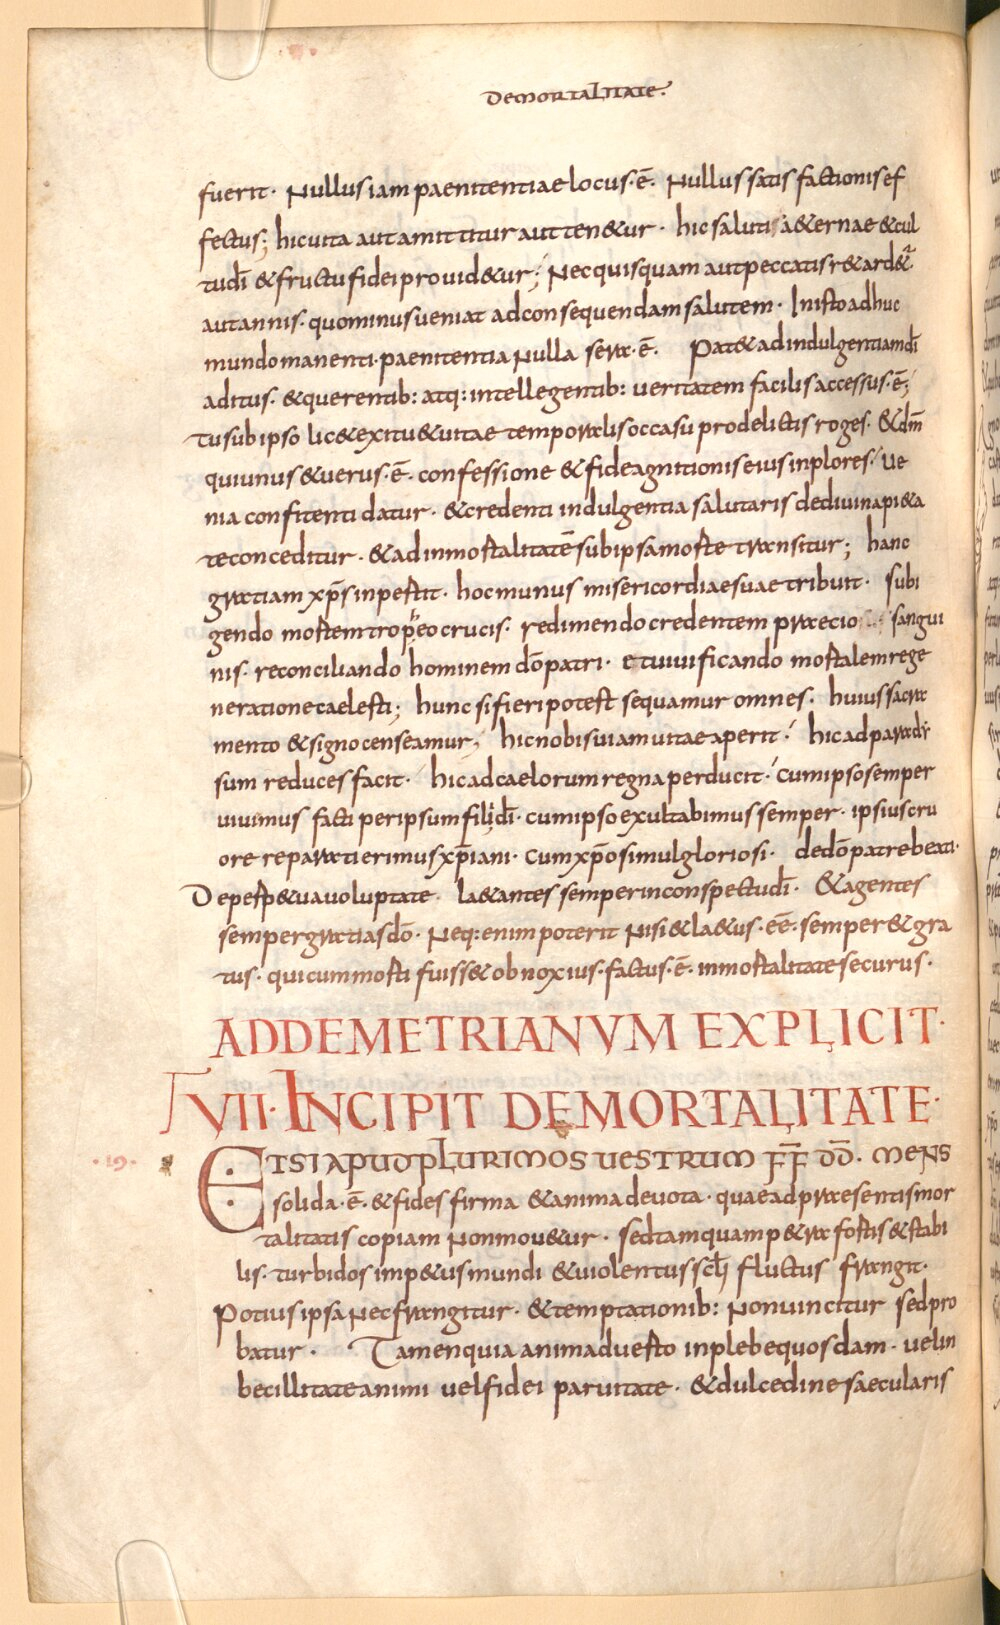 Demortalitate.
fuerit· Nullus iam paenitentiae locus·ē· Nullus satisfactionis ef
fectus; hic uita aut amittitur aut ten&ur· hic saluti a&ernae &cul
tu dī & fructu fidei prouid&ur; Nec quisquam aut peccatis r&ard&ur
aut annis· quominus ueniat ad consequendam salutem· In isto adhuc
mundo manenti· paenitentia Nulla sera·ē· Pat& ad indulgentiam dī
aditus· & querentib: atq: intellegentib: ueritatem facilis accessus·ē;
Tu sub ipso lic& exitu & uitae temporalis occasu pro delictis roges· & dm̄
qui unus & uerus·ē· confessione & fide agnitionis eius inplores· ue
nia confitenti datur· & credenti indulgentia salutaris de diuina pi&a
te conceditur· & ad inmortalitatē sub ipsa morte transitur; hanc
gratiam xp̄s inpertit· hoc munus misericordiae suae tribuit· subi
gendo mortem tropeo crucis· redimendo credentem praecio sangui
nis· reconciliando hominem dō patri· et uiuificando mortalem rege
neratione caelesti; hunc si fieri potest sequamur omnes· huius sacra
mento & signo censeamur; hic nobis uiam uitae aperit· hic ad paradi
sum reduces facit· hic ad caelorum regna perducit· cum ipso semper
uiuimus facti per ipsum filii dī· cum ipso exultabimus semper· ipsius cru
ore reparati erimus xp̄iani· cum xp̄o simul gloriosi· de dō patre beati·
De perp&ua uoluptate· la&antes semper in conspectu dī· & agentes
semper gratias dō· Neq: enim poterit Nisi & la&us·eē· semper & gra
tus· qui cum morti fuiss& obnoxius· factus·ē· inmortalitate securus·
AD DEMETRIANVM EXPLICIT·
VII· INCIPIT DE MORTALITATE·
·19·
ETSI APUD PLURIMOS UESTRUM F̄F̄ D̄D̄· MENS
solida·ē· & fides firma & anima deuota· quae ad praesentis mor
talitatis copiam Non mou&ur· sed tamquam p&ra fortis & stabi
lis· turbidos imp&us mundi & uiolentus sclī fluctus frangit·
Potius ipsa Nec frangitur· & temptationib: Non uincitur sed pro
batur· Tamen quia animaduerto in plebe quosdam· uel in
becillitate animi uel fidei paruitate· & dulcedine saecularis